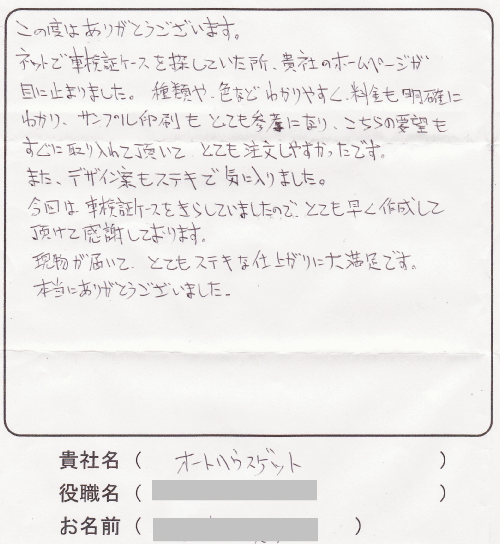 この度はありがとうございます。
ネットで車検証ケースを探していた所、貴社のホームページが
目に止まりました。種類や、色など わかりやすく、料金も明確に
わかり、サンプル印刷も とても参考になり、こちらの要望も
すぐに取り入れて頂いて、とても注文しやすかったです。
また、デザイン案もステキで気に入りました。
今回は車検証ケースをきらしていましたので、とても早く作成して
頂けて感謝しております。
現物が届いて、とてもステキな仕上がりに大満足です。
本当にありがとうございました。
貴社名（ オートハウスゲット ）
役職名（ ）
お名前（ ）